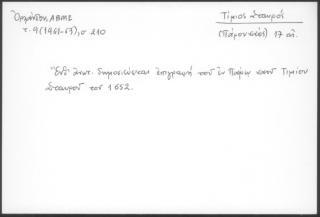 Ὀρλάνδου, ΑΒΜΕ
τ. 9 (1961-63), σ 210
Τίμιος Σταυρός
(Πάρου νῆσ) 17 αἰ.
Ἐνθ' ἀνωτ. δημοσιεύεται ἐπιγραφή τοῦ ἐν Πάρῳ ναοῦ Τιμίου
Σταυροῦ τοῦ 1652.